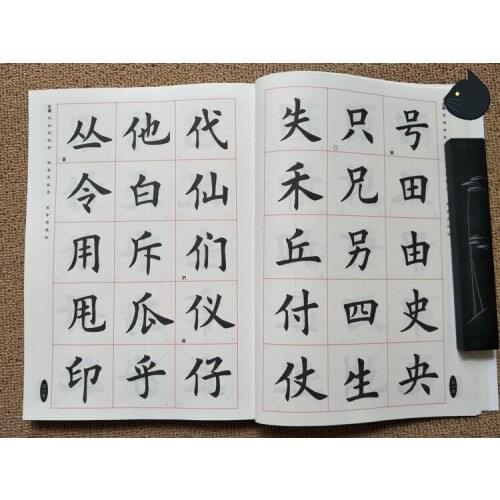 号田由史央
只兄另四生
失禾丘付仗
代仙们仪仔
他白斥瓜乎
丛令用甩印